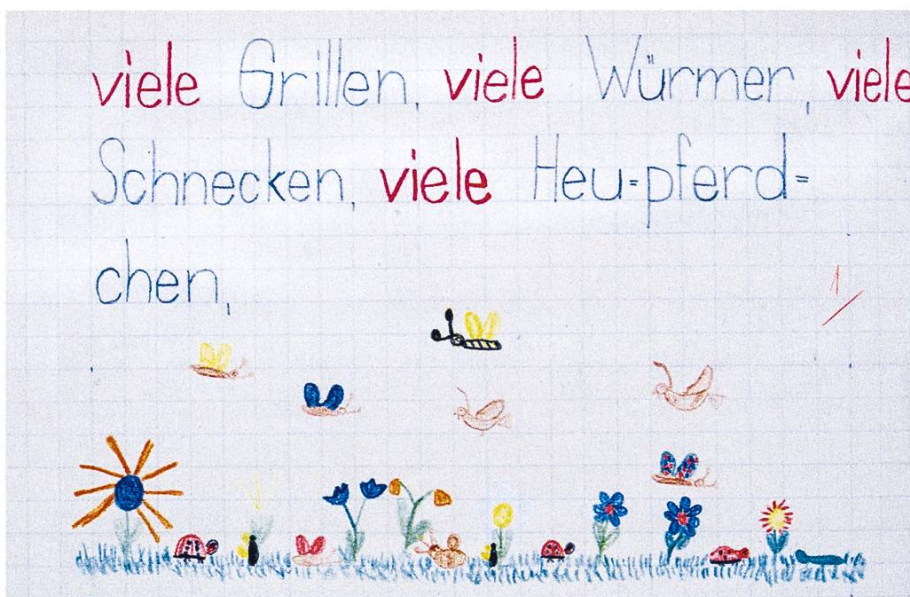 viele Grillen, viele Würmer, viele
Schnecken, viele Heu=pferd=
chen,
1